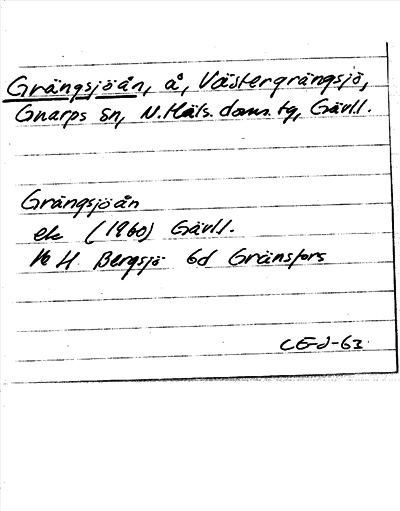 Grängsjöån, å, Västergrängsjö,
Gnarps sn, N.Häls. doms. tg, Gävll.
Grängsjöån
ek (1960) Gävll.
H. Bergsjö 6d Gränsfors
CE-d-63